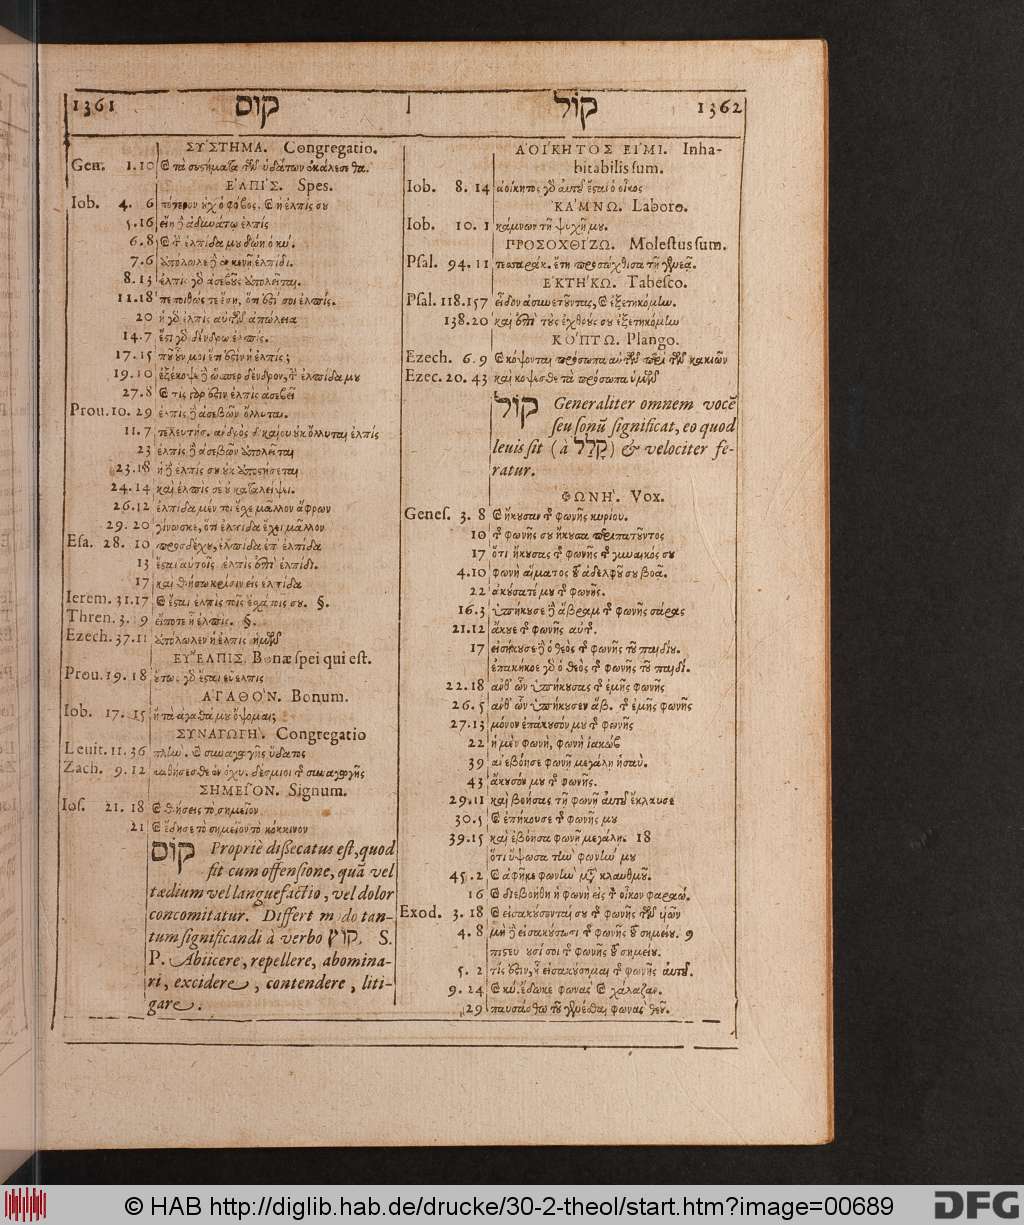 1361 קום
קול 1362
ΣΥ΄ΣΤΗΜΑ. Congregatio.
Gen. 1.10 & τὰ συστήματα τῶν ὑδάτων ἐκάλεσε θα.
ἘΛΠΙ΄Σ. Spes.
Iob. 4. 6 πότερον οὐχ ὁ φόβος. & ἡ ἐλπίς σου
5.16 εἴη δὲ ἀδυνάτῳ ἐλπίς
6.8 & τὴν ἐλπίδα μου δώῃ ὁ κύ.
7.6 ἀπόλωλε δὲ ἐν κενῇ ἐλπίδι.
8.13 ἐλπὶς γὰρ ἀσεβοῦς ἀπολεῖται.
11.18 πεποιθώς τε ἔσῃ, ὅτι ἐστί σοι ἐλπίς.
20 ἡ γὰρ ἐλπὶς αὐτῶν ἀπώλεια
14.7 ἔστι γὰρ δένδρῳ ἐλπίς.
17.15 ποῦ οὖν μοι ἔτι ἐστὶν ἡ ἐλπίς;
19.10 ἐξέκοψε δὲ ὥσπερ δένδρον, τὴν ἐλπίδα μου
27.8 & τίς γάρ ἐστιν ἐλπὶς ἀσεβεῖ
Prou. 10. 29 ἐλπὶς δὲ ἀσεβῶν ὄλλυται.
11.7 τελευτήσ. ἀνδρὸς δικαίου οὐκ ὄλλυται ἐλπίς
23 ἐλπὶς δὲ ἀσεβῶν ἀπολεῖται
23.18 ἡ δὲ ἐλπίς σου οὐκ ἀποστήσεται
24.14 καὶ ἐλπίς σε οὐ καταλείψει.
26.12 ἐλπίδα μέν τοι ἔσχε μᾶλλον ἄφρων
29. 20 γίνωσκε, ὅτι ἐλπίδα ἔχει μᾶλλον
Esa. 28. 10 προσδέχου, ἐλπίδα ἐπ' ἐλπίδα
13 ἔσται αὐτοῖς ἐλπὶς ἐπὶ ἐλπίδι.
17 καὶ θήσω κρίσιν εἰς ἐλπίδα
Ierem. 31.17 & ἔσται ἐλπὶς τοῖς ἐσχάτοις σου. §.
Thren. 3. 9 εἴποτε ἦ ἐλπίς. §.
Ezech. 37.11 ἀπόλωλεν ἡ ἐλπὶς ἡμῶν
ΕΥ῎ΕΛΠΙΣ. Bonæ spei qui est.
Prou. 19. 18 οὕτω γὰρ ἔσται εὔελπις
ἈΓΑΘΟ΄Ν. Bonum.
Iob. 17. 15 ἢ τὰ ἀγαθά μου ὄψομαι;
ΣΥΝΑΓΩΓΗ΄. Congregatio
Leuit. 11. 36 πλὴν. & συναγωγῆς ὕδατος
Zach. 9. 12 καθήσεσθε ἐν ὀχυ. δέσμιοι τῆς συναγωγῆς
ΣΗΜΕΙ͂ΟΝ. Signum.
Ios. 21. 18 & θήσεις τὸ σημεῖον
21 & ἔδησε τὸ σημεῖον τὸ κόκκινον
קוט Propriè dissecatus est, quod
fit cum offensione, quã vel
tædium vel languefactio, vel dolor
concomitatur. Differt modo tan-
tum significandi à verbo קוץ. S.
P. Abiicere, repellere, abomina-
ri, excidere, contendere, liti-
gare.
ἈΟΙ΄ΚΗΤΟΣ ΕΙ΄ΜΙ. Inha-
bitabilis sum.
Iob. 8. 14 ἀοίκητος γὰρ αὐτοῦ ἔσται ὁ οἶκος
ΚΑ΄ΜΝΩ. Laboro.
Iob. 10. 1 κάμνων τῇ ψυχῇ μου.
ΠΡΟΣΟΧΘΙ΄ΖΩ. Molestus sum.
Psal. 94. 11 τεσσαράκ. ἔτη προσώχθισα τῇ γενεᾷ.
ἘΚΤΗ΄ΚΩ. Tabesco.
Psal. 118.157 εἶδον ἀσυνετοῦντας, & ἐξετηκόμην.
138.20 καὶ ἐπὶ τοὺς ἐχθρούς σου ἐξετηκόμην
ΚΟ΄ΠΤΩ. Plango.
Ezech. 6. 9 & κόψονται πρόσωπα αὐτῶν περὶ τῶν κακιῶν
Ezec. 20. 43 καὶ κόψεσθε τὰ πρόσωπα ὑμῶν
קול Generaliter omnem vocẽ
seu sonũ significat, eo quod
leuis sit (à קָלַל) & velociter fe-
ratur.
ΦΩΝΗ΄. Vox.
Genes. 3. 8 & ἤκουσαν τῆς φωνῆς κυρίου.
10 τῆς φωνῆς σου ἤκουσα περιπατοῦντος
17 ὅτι ἤκουσας τῆς φωνῆς τῆς γυναικός σου
4.10 φωνὴ αἵματος τοῦ ἀδελφοῦ σου βοᾷ.
22 ἀκούσατέ μου τῆς φωνῆς.
16.3 ὑπήκουσε δὲ ἅβραμ τῆς φωνῆς σάρας
21.12 ἄκουε τῆς φωνῆς αὐτῆς.
17 εἰσήκουσε δὲ ὁ θεὸς τῆς φωνῆς τοῦ παιδίου.
ἐπακήκοε γὰρ ὁ θεὸς τῆς φωνῆς τοῦ παιδί.
22.18 ἀνθ' ὧν ὑπήκουσας τῆς ἐμῆς φωνῆς
26.5 ἀνθ' ὧν ὑπήκουσεν ἅβ. τῆς ἐμῆς φωνῆς
27.13 μόνον ἐπάκουσόν μου τῆς φωνῆς
22 ἡ μὲν φωνὴ, φωνὴ ἰακώβ
39 ἀνεβόησε φωνῇ μεγάλῃ ἠσαῦ.
43 ἄκουσόν μου τῆς φωνῆς.
29.11 καὶ βοήσας τῇ φωνῇ αὐτοῦ ἔκλαυσε
30.5 & ἐπήκουσε τῆς φωνῆς μου
39.15 καὶ ἐβόησα φωνῇ μεγάλῃ. 18
ὅτι ὕψωσα τὴν φωνήν μου
45.2 & ἀφῆκε φωνὴν μετὰ κλαυθμοῦ.
16 & διεβοήθη ἡ φωνὴ εἰς τὸν οἶκον φαραώ.
Exod. 3. 18 & εἰσακούσονταί σου τῆς φωνῆς τῶν υἱῶν
4. 8 μὴ δὲ εἰσακούσωσι τῆς φωνῆς τοῦ σημείου. 9
πιστεύουσί σοι τῆς φωνῆς τοῦ σημείου.
5. 2 τίς ἐστιν, οὗ εἰσακούσομαι τῆς φωνῆς αὐτοῦ.
9. 24 & κύ. ἔδωκε φωνὰς & χάλαζαν.
29 παυσάσθω τοῦ γενέσθαι φωνὰς θεοῦ.
© HAB http://diglib.hab.de/drucke/30-2-theol/start.htm?image=00689
DFG